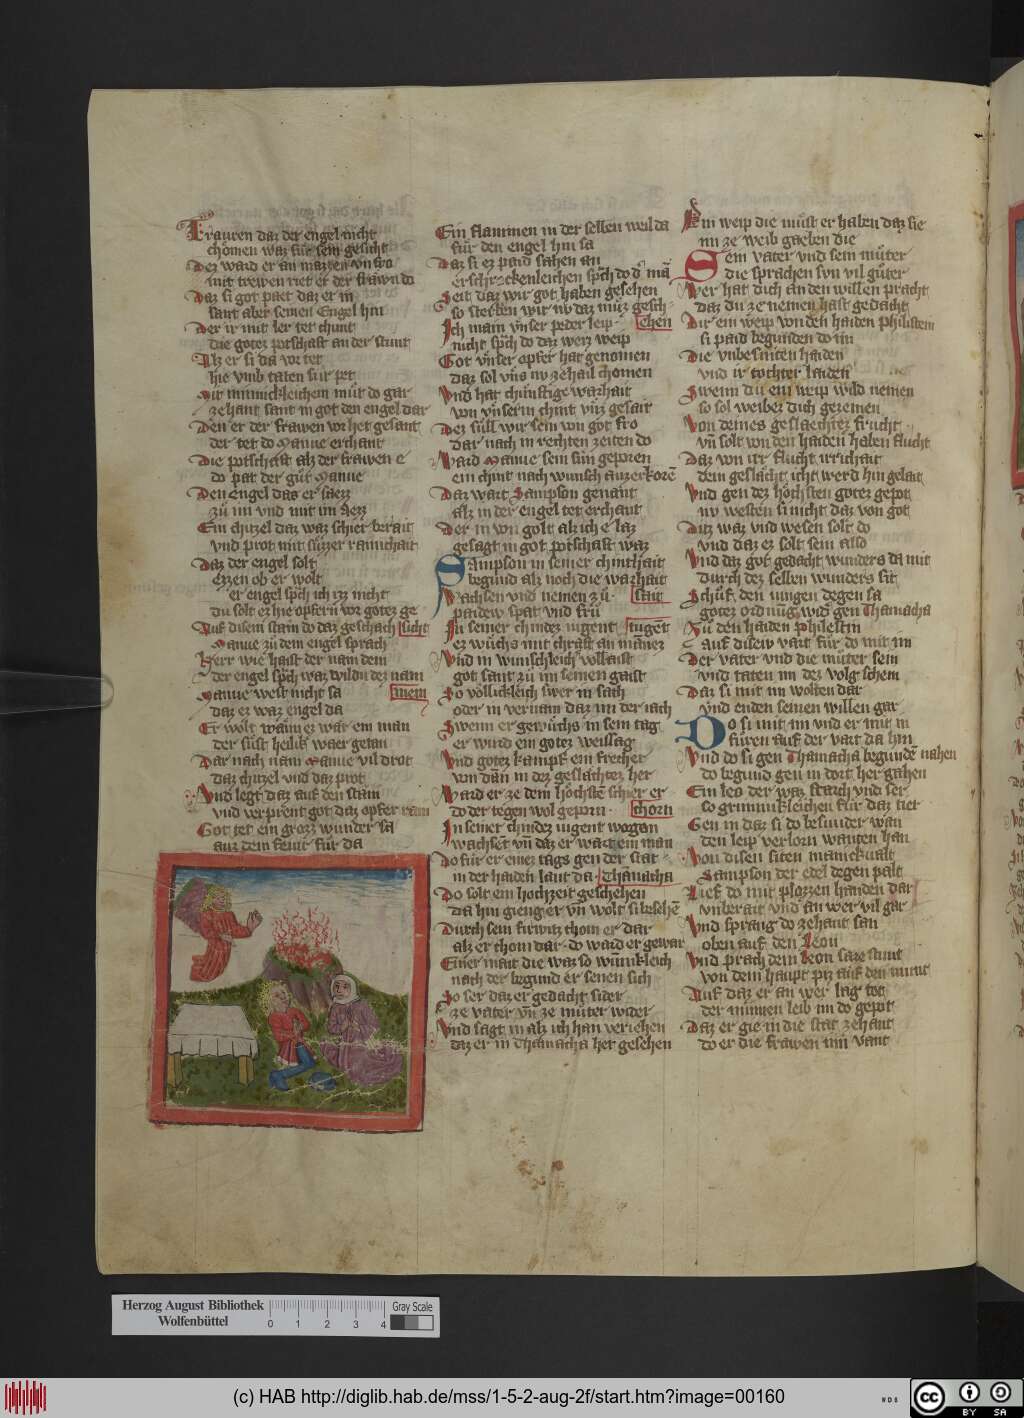 Trauren daz der engel nicht
chomen waz für sein gesicht
Dez ward er an mazzen vn fro
mit trewen riet er der frawn do
Daz si got paet daz er in
sant aber seinen Engel hin
Der ir mit ler tet chunt
die gotez potschaft an der stunt
Alz er si da vor tet
hie vmb taten sir pet
Mit innnickleichem müt do gar
zehant sant in got den engel dar
Den er der frawen vor het gesant
der tet do Manue erchant
Die potschaft alz der frawen e
do pat der güt Manue
Den Engel daz er saezz
zü im vnd mit im aezz
Ein chitzel daz waz schier berait
vnd prot mit süzzer rainichait
Daz der engel solt
ezzen ob er wolt
er engel spch ich izz nicht
du solt ez hie opfern vor gotez ge
Auf disem stain do daz geschach sicht
Manue zü dem engel sprach
Herr wie haist der nam dein
der engel spch waz wildu dez nam
Manue west nicht sa mein
daz ez waz engel da
Er wolt waün ez wär ein man
der süst heilik waer getan
Dar nach nam Manue vil drot
daz chitzel vnd daz prot
Vnd legt daz auf den stain
vnd verprent got daz opfer rain
Got tet ein grozz wunder sa
auz dem feuit für da
Ein flammen in der selben weil da
für den engel hin sa
Daz si ez paid sahen an
erschrockenleichen spch do d man
Seit daz wir got haben gesehen
so sterben wir nv daz müz gesch
Ich main vnser peder leip chen
nicht spch do daz werz weip
Got vnser opfer hat genomen
daz sol vns nv ze hail chomen
Vnd hat chünftige warhait
von vnserm chint vns gesait
Dez süll wir sein von got fro
dar nach in rechten zeiten do
Ward Manue sein sün geporn
ein chint nach wunsch auzerkorn
Daz wart Sampson genant
alz in der engel tet erchant
Der in von golt alz ich e laz
gesagt in got potschaft waz
Sampson in seiner chinthait
begund alz noch die warhait
Wachsen vnd nemen zü sait
paidew spat vnd frü
In seiner chindez iugent tugent
er wüchs mit chraft an mannez
Vnd in wunschleich vollaist
got sant zü im seinen gaist
So völlickleich swer in sach
oder in vernam daz im der iach
Swenn er gewüchs in sein tag
er wurd ein gotez weissag
Vnd gotez kampf ein frecher
von dan in dez geslachtez her
Ward er ze dem höchsten schier er
do der tegen wol geporn chorn
In seiner chindez iugent wogan
wachsen vn daz er wart ein man
Do für er einez tags gen der stat
in der haiden laut da Thamacha
Do solt ein hochzeit geschehen
da hin gieng er vn wolt si besehen
Durch sein fürwitz chom er dar
alz er chom dar do ward er gewar
Einer mait die waz so wünkleich
nach der begund er senen sich
So ser daz er gedacht sider
ze vater vn ze müter wider
Vnd sagt in alz ich han veriehen
daz er in Thamacha het gesehen
Ein weip die müst er haben daz sie
im ze weib gaeben die
Sein vater vnd sein müter
die sprachen svn vil güter
Wer hat dich an den willen pracht
daz du ze nemen hast gedacht
Dir ein weip von den haiden philistein
si paid begunden do im
Die vnbesniten haiden
vnd ir tochter laiden
Swenn du ein weip wild nemen
so sol weiber dich gezemen
Von deines geslaechtez frücht
vn solt von den haiden haben flücht
Daz von irr flücht irrichait
dein geslächt icht werd hin gelait
Vnd gen dez höchsten gotez gepot
nv westen si nicht daz von got
Ditz waz vnd wesen solt do
vnd daz ez solt sein also
Vnd daz got gedacht wunders da mit
durch dez selben wunders sit
Schüf den iungen degen sa
gotez ordnüg wid gen Thamacha
Zü den haiden Philestin
auf disew vart für do mit im
Der vater vnd die müter sein
vnd taten im dez volg schein
Daz si mit im wolten dar
vnd enden seinen willen gar
Do si mit im vnd er mit in
füren auf der vart da hin
Vnd do si gen Thamacha begunden nahen
do begund gen in dort her gahen
Ein leo der waz starch vnd ser
so grimmkleichen für daz tier
Gen in daz si do besunder wan
den leip verlorn wanten han
Von disen siten manickualt
Sampson der edel degen palt
Lief do mit plozzen handen dar
vnberait vnd an wer vil gar
Vnd sprang do zehant san
oben auf den Leon
Vnd prach dem Leon saze stunt
von dem haupt piz auf den munt
Auf daz er an wer lag tot
der minnen leib im do gepot
Daz er gie in die stat zehant
do er die frawen inn vant
Herzog August Bibliothek
Wolfenbüttel
0 1 2 3 4
Gray Scale
(c) HAB http://diglib.hab.de/mss/1-5-2-aug-2f/start.htm?image=00160
WDB
cc BY SA